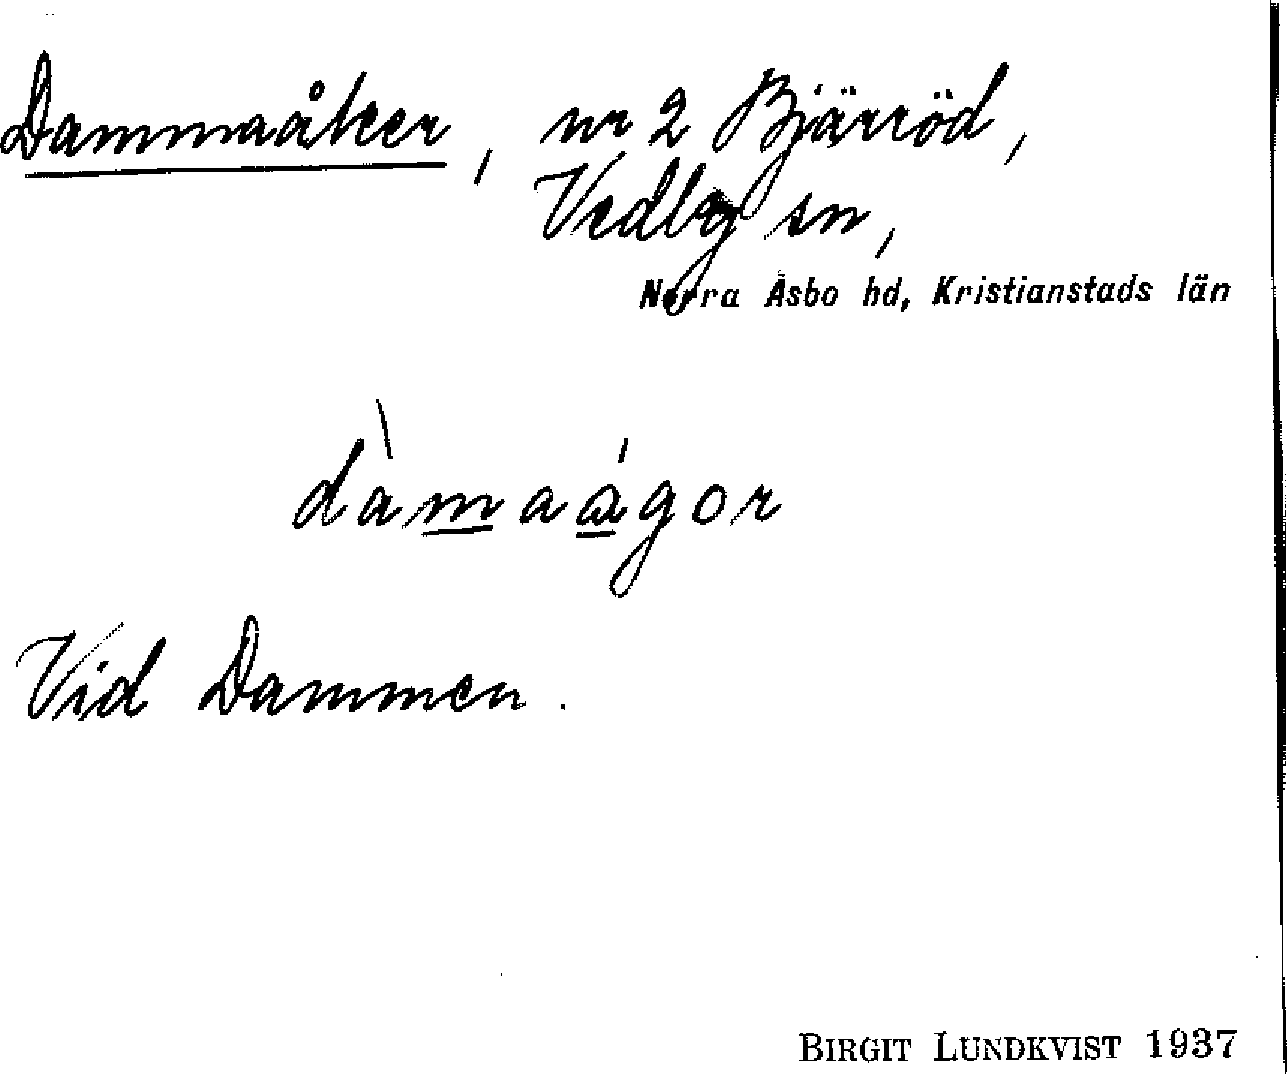 Dammaåker, nr 2 Bjärröd,
Vedby sn,
Norra Åsbo hd, Kristianstads län
dàmaágor
Vid Dammen.
BIRGIT LUNDKVIST 1937